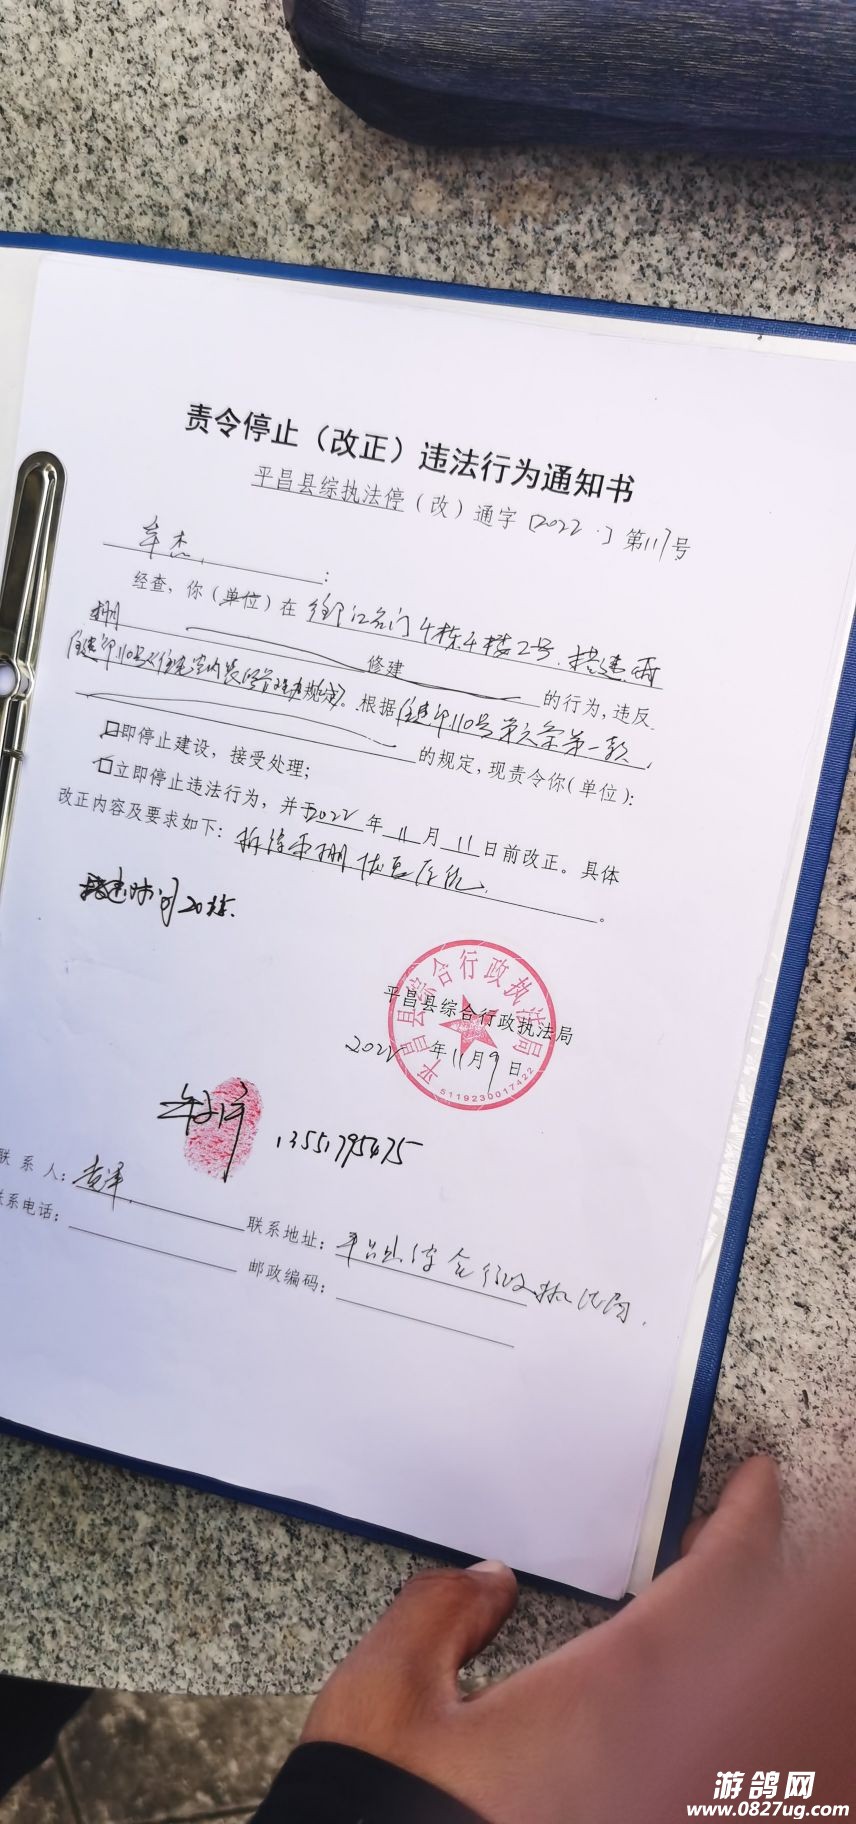 责令停止（改正）违法行为通知书
平昌县综执法停（改）通字［2022］第117号
牟杰：
经查，你（单位）在御江名门4栋4楼2号.搭建雨
棚 修建 的行为，违反
住建部110号《住宅室内装饰管理规定》。根据住建部110号第六条第一款，
的规定，现责令你（单位）：
□即停止建设，接受处理；
□立即停止违法行为，并于2022年11月11日前改正。具体
改正内容及要求如下：拆除雨棚恢复原状。
搭建时间20
平昌县综合行政执法局
平昌县综合行政执法局
2022年11月9日
5119230017422
13551795475
联系人：
联系地址：平昌县综合行政执法局.
联系电话：
邮政编码：
游鸽网
www.0827ug.com